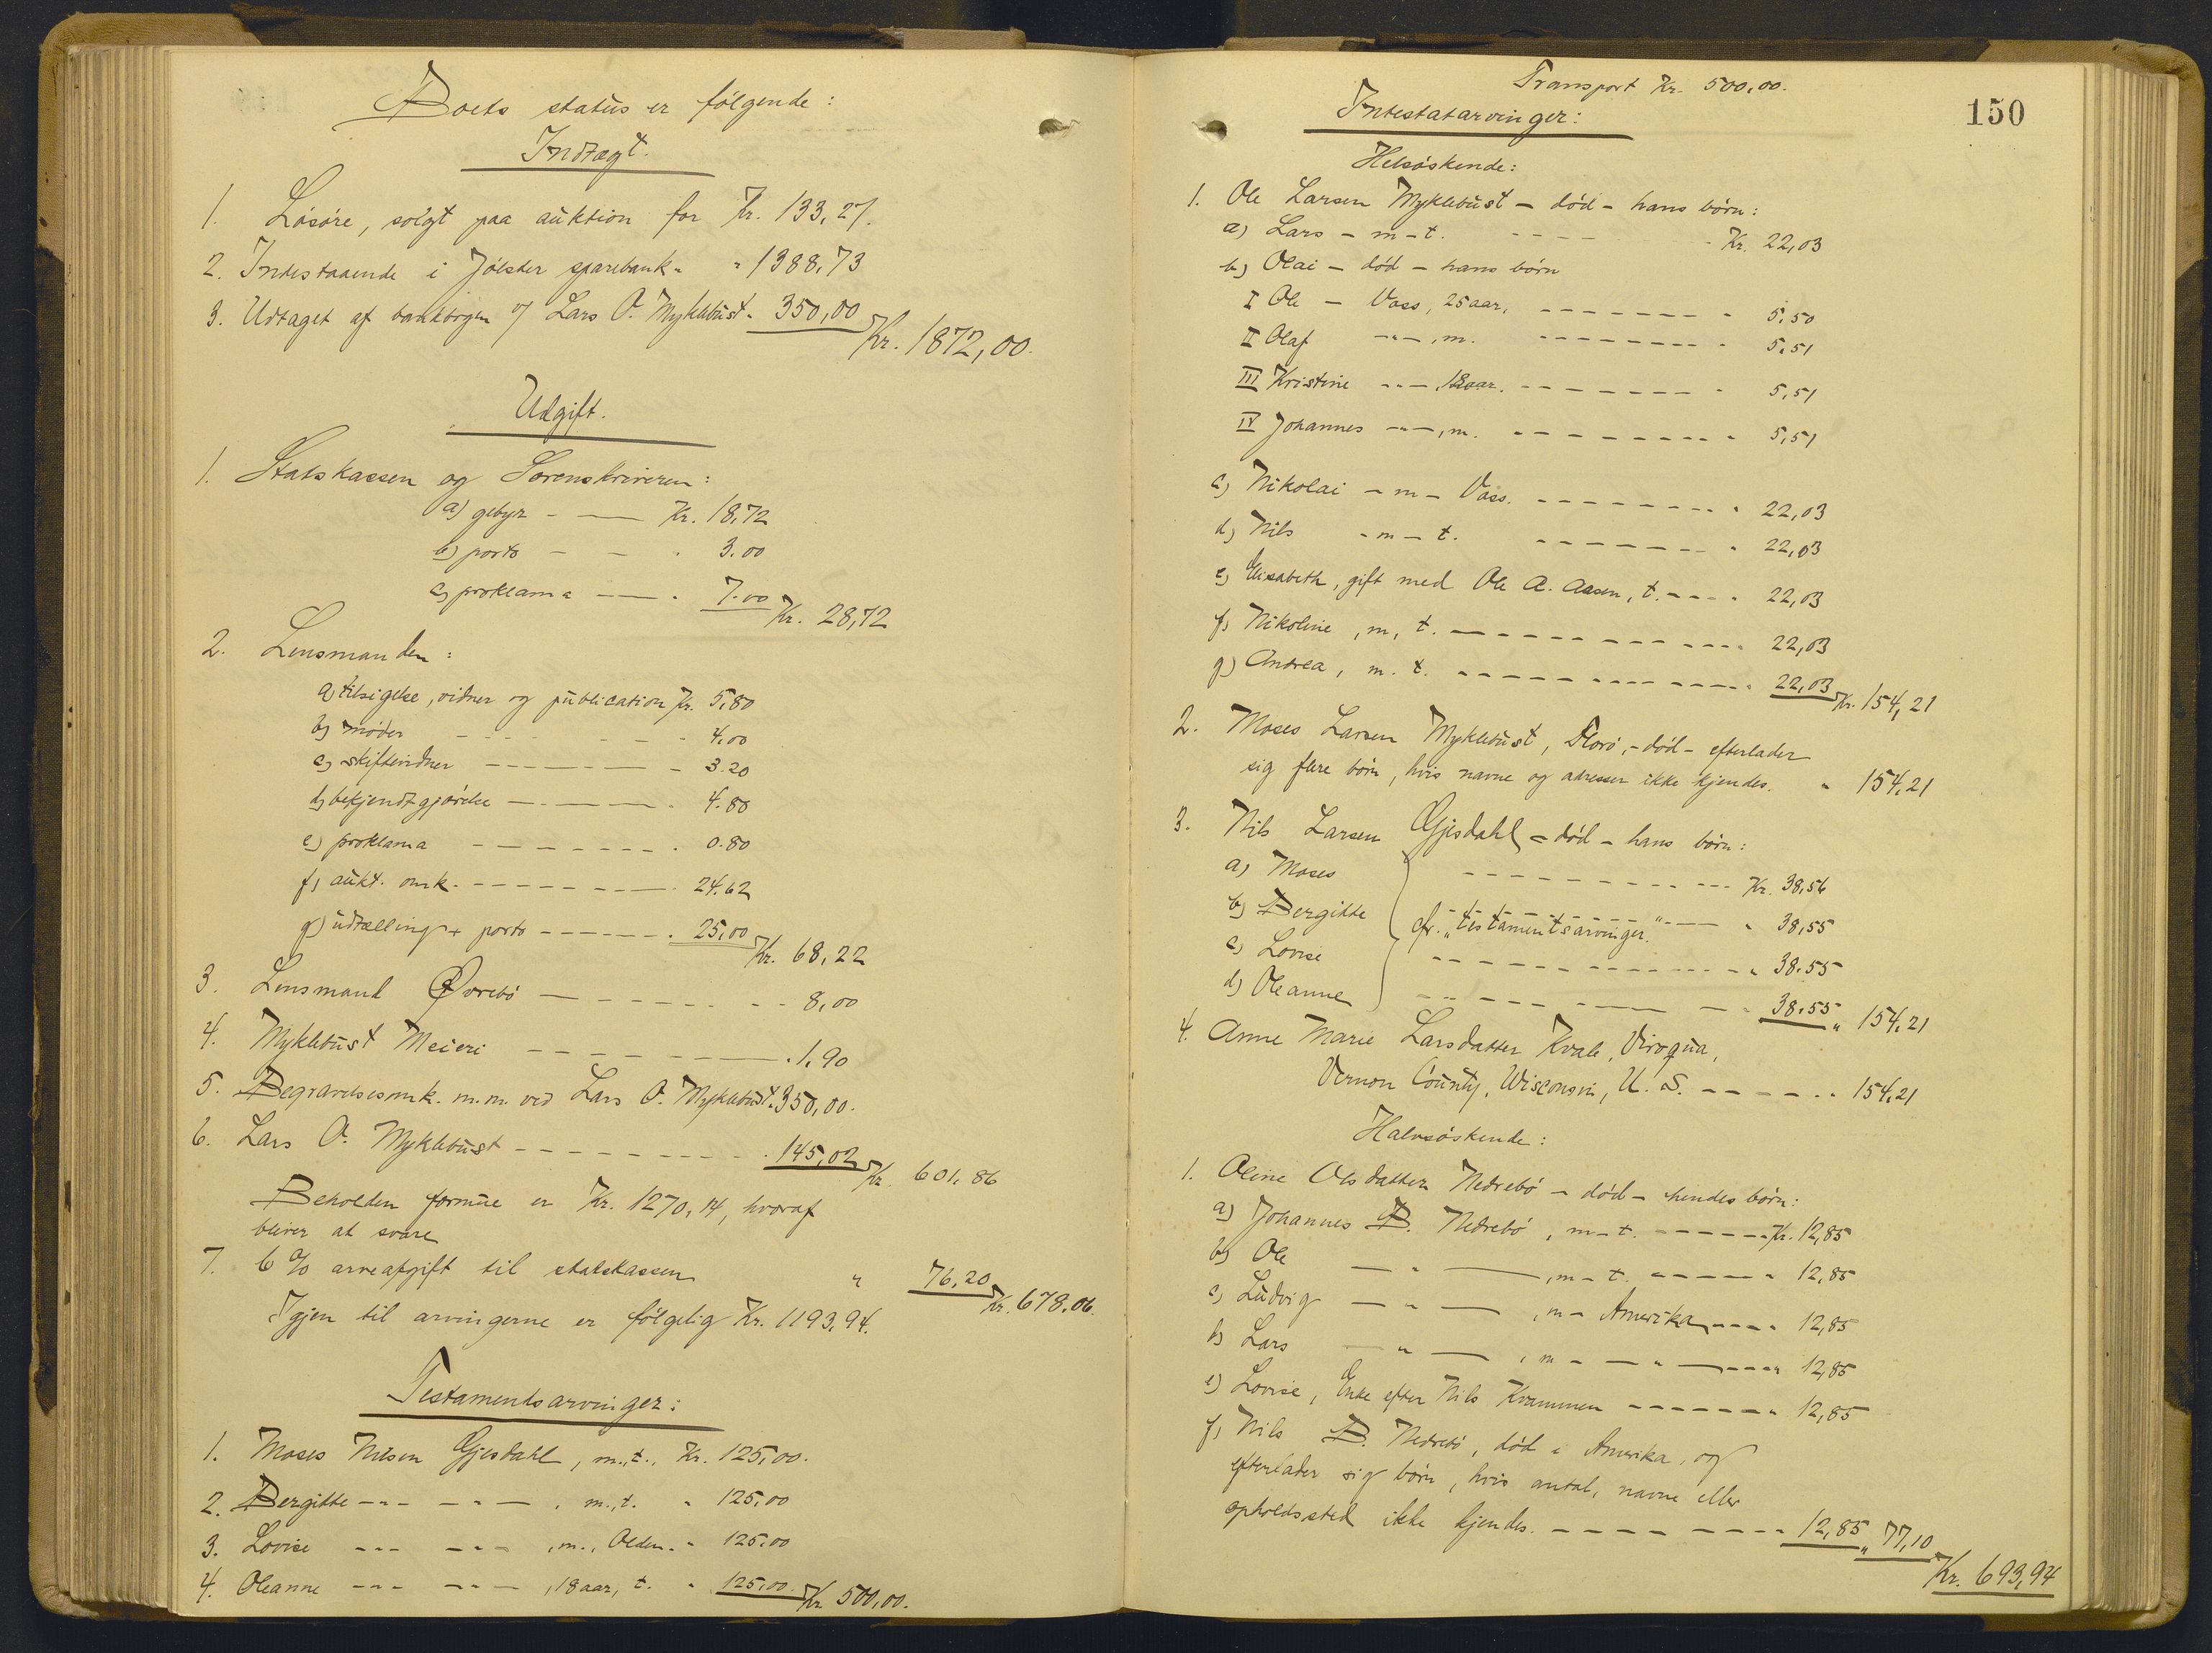 Boets status er følgende:
Indtægt.
1. Løsøre, solgt paa auktion for Kr. 133,27.
2. Indestaaende i Jølster sparebank " " 1388,73
3. Udtaget af bankbogen v/ Lars O. Myklebust " 350,00 Kr. 1872,00.
Udgift.
1. Statskassen og Sorenskriveren:
a) gebyr - — Kr. 18,72
b) porto - - " 3.00
c) proklama — " 7.00 Kr. 28,72
2. Lensmanden:
a) tilsigelse, vidner og publication Kr. 5,80
b) møder - - - - 4,00
c) skiftevidner - - - - 3.20
d) bekjendtgjørelse - - - - 4.80
e) proklama - - - - " 0.80
f) aukt. omk. - - - - " 24.62
g) udtælling + porto - - - - " 25,00 Kr. 68,22
3. Lensmand Øvrebø - - - - 8,00
4. Myklebust Meieri - - - - " 1,90
5. Begravelsesomk. m.m. ved Lars O. Myklebust " 350,00.
6. Lars O. Myklebust - - - - " 145,02 Kr. 601,86
Beholden formue er Kr. 1270,14, hvoraf
bliver at svare
7. 6 % arveafgift til statskassen " 76,20 Kr. 678,06.
Igjen til arvingerne er følgelig Kr. 1193,94.
Testamentsarvinger:
1. Moses Nilsen Gjesdahl, m., t., Kr. 125,00.
2. Bergitte -"- -"-, m., t. " 125,00
3. Lovise -"- -"-, m., Olden. " 125,00
4. Oleanne -"- -"-, 18 aar, t. " 125,00. Kr. 500,00.
150
Transport Kr. 500,00.
Intestatarvinger:
Helsøskende:
1. Ole Larsen Myklebust - død - hans børn:
a) Lars - m - t. - - - - Kr. 22,03
b) Olai - død - hans børn
I Ole - Vass, 25 aar, - - - - " 5,50
II Olaf -"-, m. - - - - " 5,51
III Kristine -"-, 18 aar. - - - - " 5,51
IV Johannes -"-, m. - - - - " 5,51
c) Nikolai - m - Vass. - - - - " 22,03
d) Nils - m - t. - - - - " 22,03
e) Elisabeth, gift med Ole A. Aasen, t. - - - " 22,03
f) Nikoline, m, t. - - - - " 22,03
g) Andrea, m. t. - - - - " 22,03 Kr. 154,21
2. Moses Larsen Myklebust, Florø, - død - efterlader
sig flere børn, hvis navne og adresser ikke kjendes. " 154,21
3. Nils Larsen Gjesdahl - død - hans børn:
a) Moses - - - - Kr. 38,56
b) Bergitte - - - - " 38,55
cfr. "testamentsarvinger."
c) Lovise - - - - " 38.55
d) Oleanne - - - - 38.55 " 154,21
4. Anne Marie Larsdatter Kvale, Viroqua,
Vernon County, Wisconsin, U. S. - - - - " 154,21
Halvsøskende:
1. Oline Olsdatter Nedrebø - død - hendes børn:
a) Johannes B. Nedrebø, m - t. - - - - Kr. 12,85
b) Ole — " —, m - t. - - - - " 12,85
c) Ludvig — " —, m - Amerika - - - - " 12,85
d) Lars — " —, m - — " — - - - - " 12,85
e) Lovise, Enke efter Nils Kvammen - - - - " 12,85
f) Nils B. Nedrebø, død i Amerika, og
efterlader sig børn, hvis antal, navne eller
opholdssted ikke kjendes. - - - - 12,85 " 77,10
Kr. 693,94